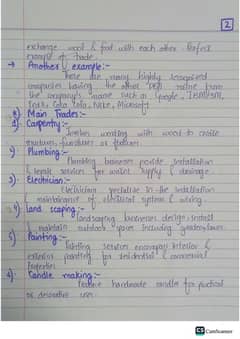 2
exchange wool & food with each other. Perfect
example of trade.
→ Another example:-
There are many highly recognized
companies having the other
the company's name such as Google,
Coca Cola, Nike, Microsoft
B) Main Trades:-
1) Carpentry:-
Involves working with wood to create
structures, furniture or features.
2) Plumbing:-
Plumbing businesses provide installation
& repair services for water supply & drainage.
3) Electrician:-
Electricians specialize in the installation
& maintenance of electrical system & wiring.
4) Land scaping:-
Landscaping businesses design, install
& maintain outdoor spaces including gardens, lawns.
5) Painting:-
Painting services encompass interior &
exterior painting for residential & commercial
properties.
6) Candle making:-
Feature handmade candles for practical
or decorative use.
CS CamScanner